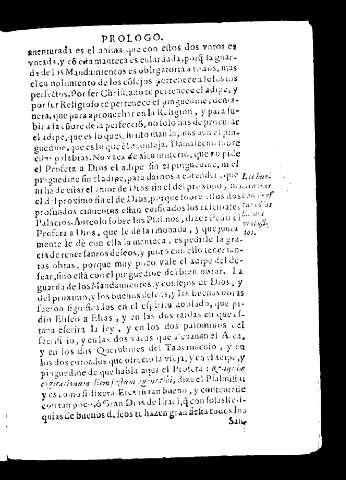 PROLOGO.
auenturada es el anima que con estos dos votos es
vncada, y cõ esta manteca es enlardada, porq̃ la guar-
da de los Mandamientos es obligatoria a todos, mas
el cumplimiento de los cõsejos pertenece a solos los
perfectos. Por ser Christiano te pertenece el adipe, y
por ser Religioso te pertenece el pinguedine, de ma-
nera, que para aprouechar en la Religion, y para su-
bir a la cũbre de la perfeciõ, no solo has de procurar
el adipe, que es lo que el
guedine, que es lo que el aconseja. Damasceno sobre
estas palabras. No vaca de alto misterio, que no pide
el Profeta a Dios el adipe sin el pinguedine, ni el
pinguedine sin el adipe, para darnos a entender, que
ni ha de estar el amor de Dios sin el del proximo, ni
el del proximo sin el de Dios, porque sobre estos dos
profundos cimientos estan edificados los celestiales
Palacios. Aureolo sobre los Psalmos, dize: Pedir el
Profeta a Dios, que le dè la riñonada, y que junta
mente le dè con ella la manteca, es pedirle la gra-
cia de tener santos deseos, y junto con ello tener san-
tas obras, porque muy poco vale el adipe del de-
sear, sino està con el pinguedine del bien obrar. La
guarda de los Mandamientos, y consejos de Dios, y
del proximo, y los buenos deseos, y las buenas obras
fueron significados en el espiritu doblado, que pi-
dio Eliseo a Elias, y en las dos tablas en que es-
taua escrita la ley, y en los dos palominos del
sacrificio, y en las dos vacas que lleuauan el Arca,
y en los dos Querubines del Tabernaculo, y en
los dos cornados que ofrecio la vieja, y en el adipe, y
pinguedine de que habla aqui el Profeta:
cogitationum diem festum agent tibi, dize el Psalmista;
y es como si dixera: Eres tu tan bueno, y contentaste
con tan poco, ò Gran Dios de Israel, q̃ con solas Reli-
quias de buenos deseos te hazen gran fiesta todos los
Las bue-
nas obras